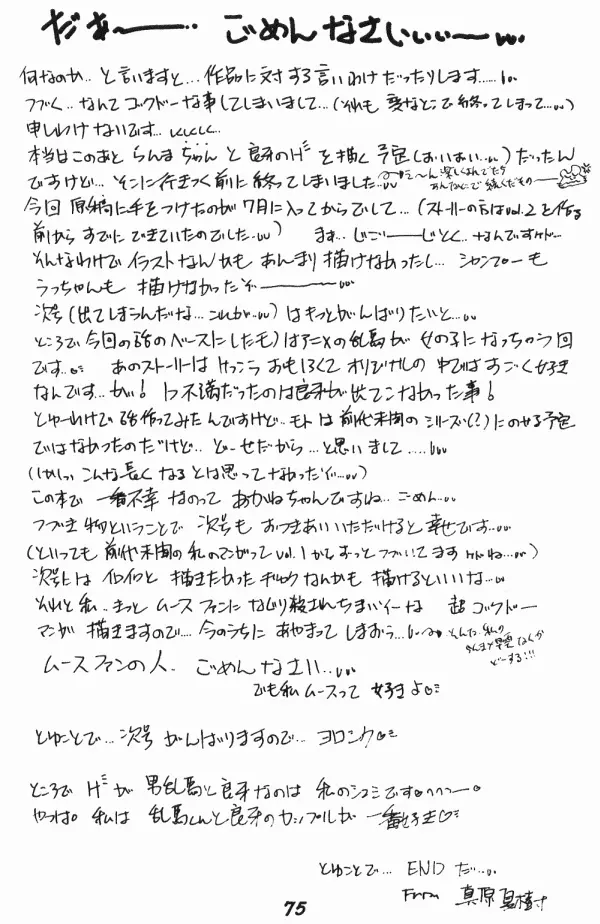 だぁ〜──‥ ごめんなさいぃぃぃ〜…
何なのか‥と言いますと…作品に対する言いわけだったりします……
つづく‥なんてゴクドーな事してしまいまして…(それも変なとこで終ってしまって…)
申しわけないです…
本当はこのあと らんまちゃんと良牙のHを描く予定(おいおい…)だったん
ですけど…そこに行きつく前に終ってしまいました…
今回 原稿に手をつけたのが7月に入ってからでして…(ストーリーの方はvol.2を作る
前からすでにできていたのでした…) まぁ…じごー──じとく‥なんですけど…
そんなわけでイラストなんかもあんまり描けなかったし… シャンプーも
うっちゃんも描けなかったぞ────…
次号(出てしまうんだな…これが…)はもっとがんばりたいと…
ところで今回の話のベースにしたモノはアニメの乱馬が女の子になっちゃう回
です… あのストーリーはけっこうおもしろくてオリジナルの中ではすごく好き
なんです…が! 1つ不満だったのは良牙が出てこなかった事!
とゆーわけで話作ってみたんですけど‥モトは前代未聞のシリーズ(?)にのせる予定
ではなかったのだけど‥どーせだから…と思いまして……
(しかしこんな長くなるとは思ってなかったぞ…)
この本で一番不幸なのってあかねちゃんですね‥ごめん…
つづき物ということで次号もおつきあいいただけると幸せです…
(といっても前代未聞の私のまんがってvol.1からずっとつづいてますけどね…)
次号にはイロイロと描きたかったギャグなんかも描けるといいな…
それと私‥きっとムースファンになじり殺されちまいそーな超ゴクドー
マンガ描きますので…今のうちにあやまってしまおう…
ムースファンの人‥ ごめんなさい…
でも私ムースって好きよ♡
とゆことで…次号がんばりますので…ヨロシク♡
ところでHが男乱馬と良牙なのは私のシュミです〜。
やっぱ。私は乱馬くんと良牙のカップルが一番好き♡
とゆことで… ENDだ…
From 真原夏樹
75